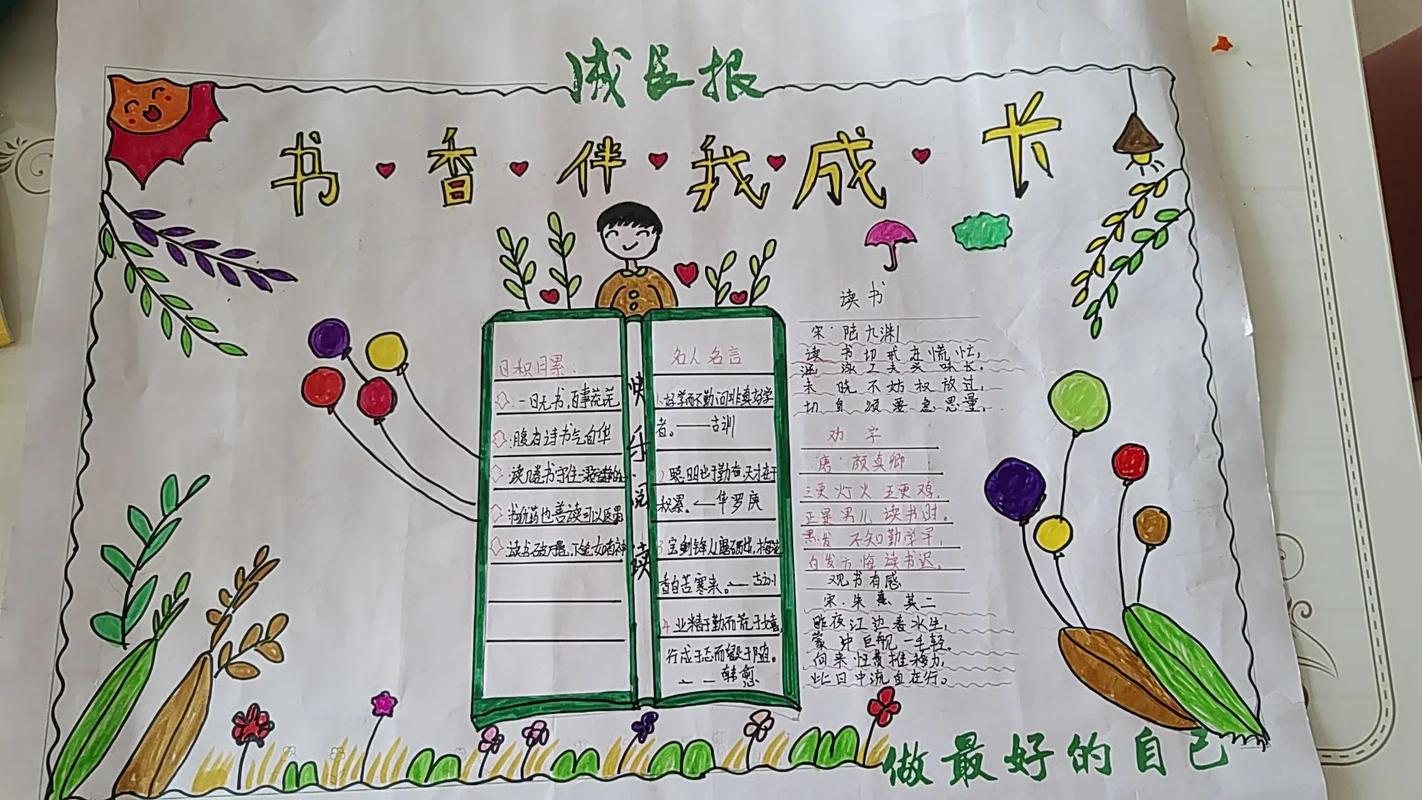 成长报
书香伴我成长
日积月累:
一日无书,百事荒芜
腹有诗书气自华
书犹药也善读可以医愚
读书破万卷,下笔如有神
快乐阅读
名人名言
1.好学而不勤问非真好学
者。——古训
2聪明出于勤奋,天才在于
积累。——华罗庚
3宝剑锋从磨砺出,梅花
香自苦寒来。——古训
4.业精于勤而荒于嬉,
行成于思而毁于随。
——韩愈
读书
宋·陆九渊
读书切戒在慌忙,
涵泳工夫兴味长。
未晓不妨权放过,
切身须要急思量。
劝学
唐·颜真卿
三更灯火五更鸡,
正是男儿读书时。
黑发不知勤学早,
白发方悔读书迟。
观书有感
宋·朱熹其二
昨夜江边春水生,
蒙冲巨舰一毛轻。
向来枉费推移力,
此日中流自在行。
做最好的自己